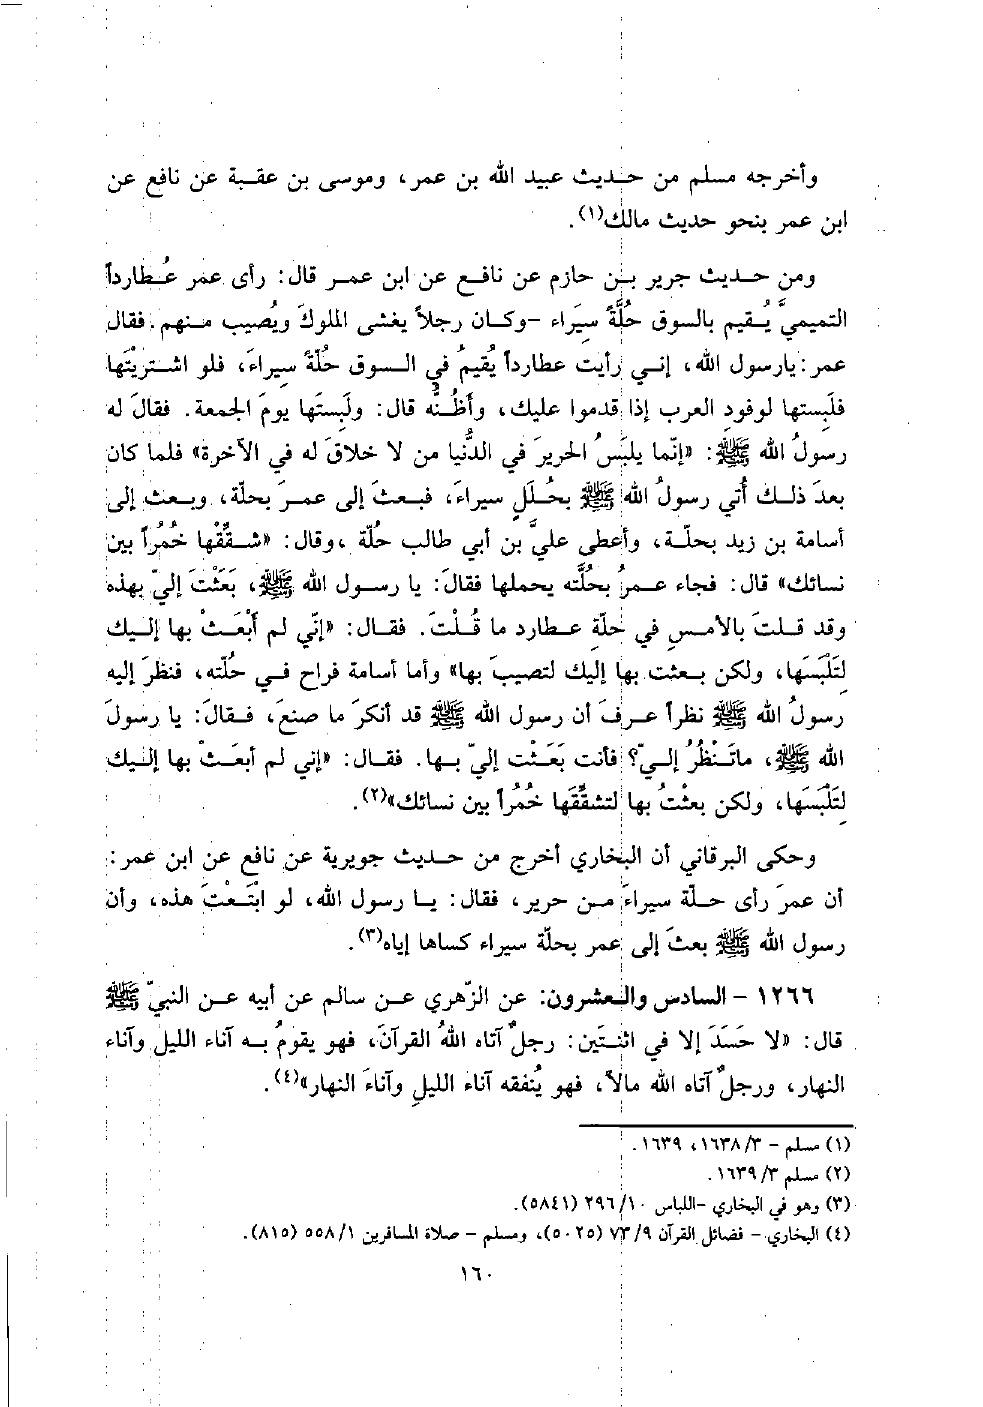 وأخرجه مسلم من حديث عبيد الله بن عمر، وموسى بن عقبة عن نافع عن
ابن عمر بنحو حديث مالك(١).
ومن حديث جرير بن حازم عن نافع عن ابن عمر قال: رأى عمر عُطارداً
التميميَّ يُقيم بالسوق حُلَّةً سِيَراء -وكان رجلاً يغشى الملوكَ ويُصيب منهم. فقال
عمر: يارسول الله، إني رأيت عطارداً يُقيمُ في السوق حُلّةً سِيراءَ، فلو اشتريْتَها
فلَبِستها لوفودِ العرب إذا قدموا عليك، وأظُنُّه قال: ولَبِستَها يومَ الجمعة. فقالَ له
رسولُ الله ﷺ: «إنّما يلبَسُ الحريرَ في الدُّنيا من لا خلاقَ له في الآخرة» فلما كان
بعدَ ذلك أُتي رسولُ الله ﷺ بحُلَلٍ سيراءَ، فبعثَ إلى عمرَ بحلّة، وبعث إلى
أسامة بن زيد بحلّة، وأعطى عليَّ بن أبي طالب حُلّة ،وقال: «شقِّقْها خُمُراً بين
نسائك» قال: فجاء عمرُ بحُلَّته يحملها فقالَ: يا رسول الله ﷺ، بَعَثْتَ إليّ بهذه
وقد قلتَ بالأمسِ في حُلّةِ عطارد ما قُلْتَ. فقال: «إنّي لم أبْعَثْ بها إليك
لتَلْبَسَها، ولكن بعثت بها إليك لتصيبَ بها» وأما أسامة فراح في حُلّته، فنظرَ إليه
رسولُ الله ﷺ نظراً عرفَ أن رسول الله ﷺ قد أنكرَ ما صنعَ، فقالَ: يا رسولَ
الله ﷺ، ماتَنْظُرُ إليّ؟ فأنت بَعَثْت إليّ بها. فقال: «إني لم أبعَثْ بها إليك
لِتَلْبَسَها، ولكن بعثْتُ بها لتشقِّقَها خُمُراً بين نسائك»(٢).
وحكى البرقاني أن البخاري أخرج من حديث جويرية عن نافع عن ابن عمر:
أن عمرَ رأى حلّة سيراءَ من حرير، فقال: يا رسول الله، لو ابْتَعْتَ هذه، وأن
رسول الله ﷺ بعثَ إلى عمر بحلّة سيراء كساها إياه(٣).
١٢٦٦ - السادس والعشرون: عن الزّهري عن سالم عن أبيه عن النبيّ ﷺ
قال: «لا حَسَدَ إلا في اثنتَين: رجلٌ آتاه اللهُ القرآنَ، فهو يقومُ به آناء الليل وآناء
النهار، ورجلٌ آتاه الله مالاً، فهو يُنفقه آناءَ الليلِ وآناءَ النهار»(٤).
(١) مسلم - ٣/ ١٦٣٨، ١٦٣٩.
(٢) مسلم ٣/ ١٦٣٩.
(٣) وهو في البخاري -اللباس ١٠/ ٢٩٦ (٥٨٤١).
(٤) البخاري - فضائل القرآن ٩/ ٧٣ (٥٠٢٥)، ومسلم - صلاة المسافرين ١/ ٥٥٨ (٨١٥).
١٦٠